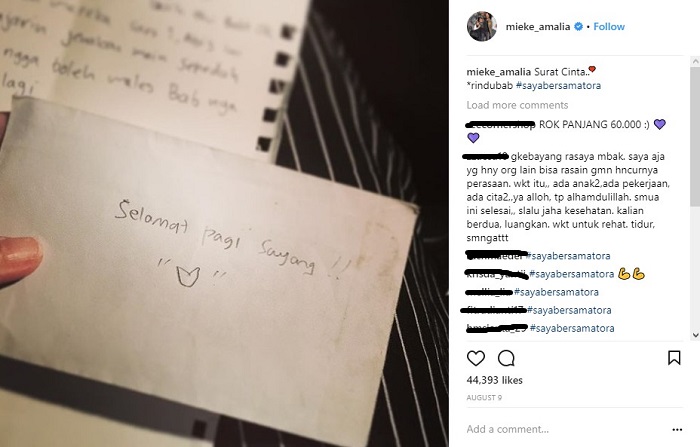 jalanan main sepedah
ngga boleh males Bab nya
lagi
Selamat pagi Sayang !!
mieke_amalia • Follow
mieke_amalia Surat Cinta..
*rindubab #sayabersamatora
Load more comments
ROK PANJANG 60.000 :)
gkebayang rasaya mbak. saya aja
yg hny org lain bisa rasain gmn hncurnya
perasaan. wkt itu,, ada anak2,ada pekerjaan,
ada cita2,,ya alloh, tp alhamdulillah. smua
ini selesai,, slalu jaha kesehatan. kalian
berdua. luangkan. wkt untuk rehat. tidur,
smngattt
#sayabersamatora
#sayabersamatora
#sayabersamatora
#sayabersamatora
#sayabersamatora
44,393 likes
AUGUST 9
Add a comment…